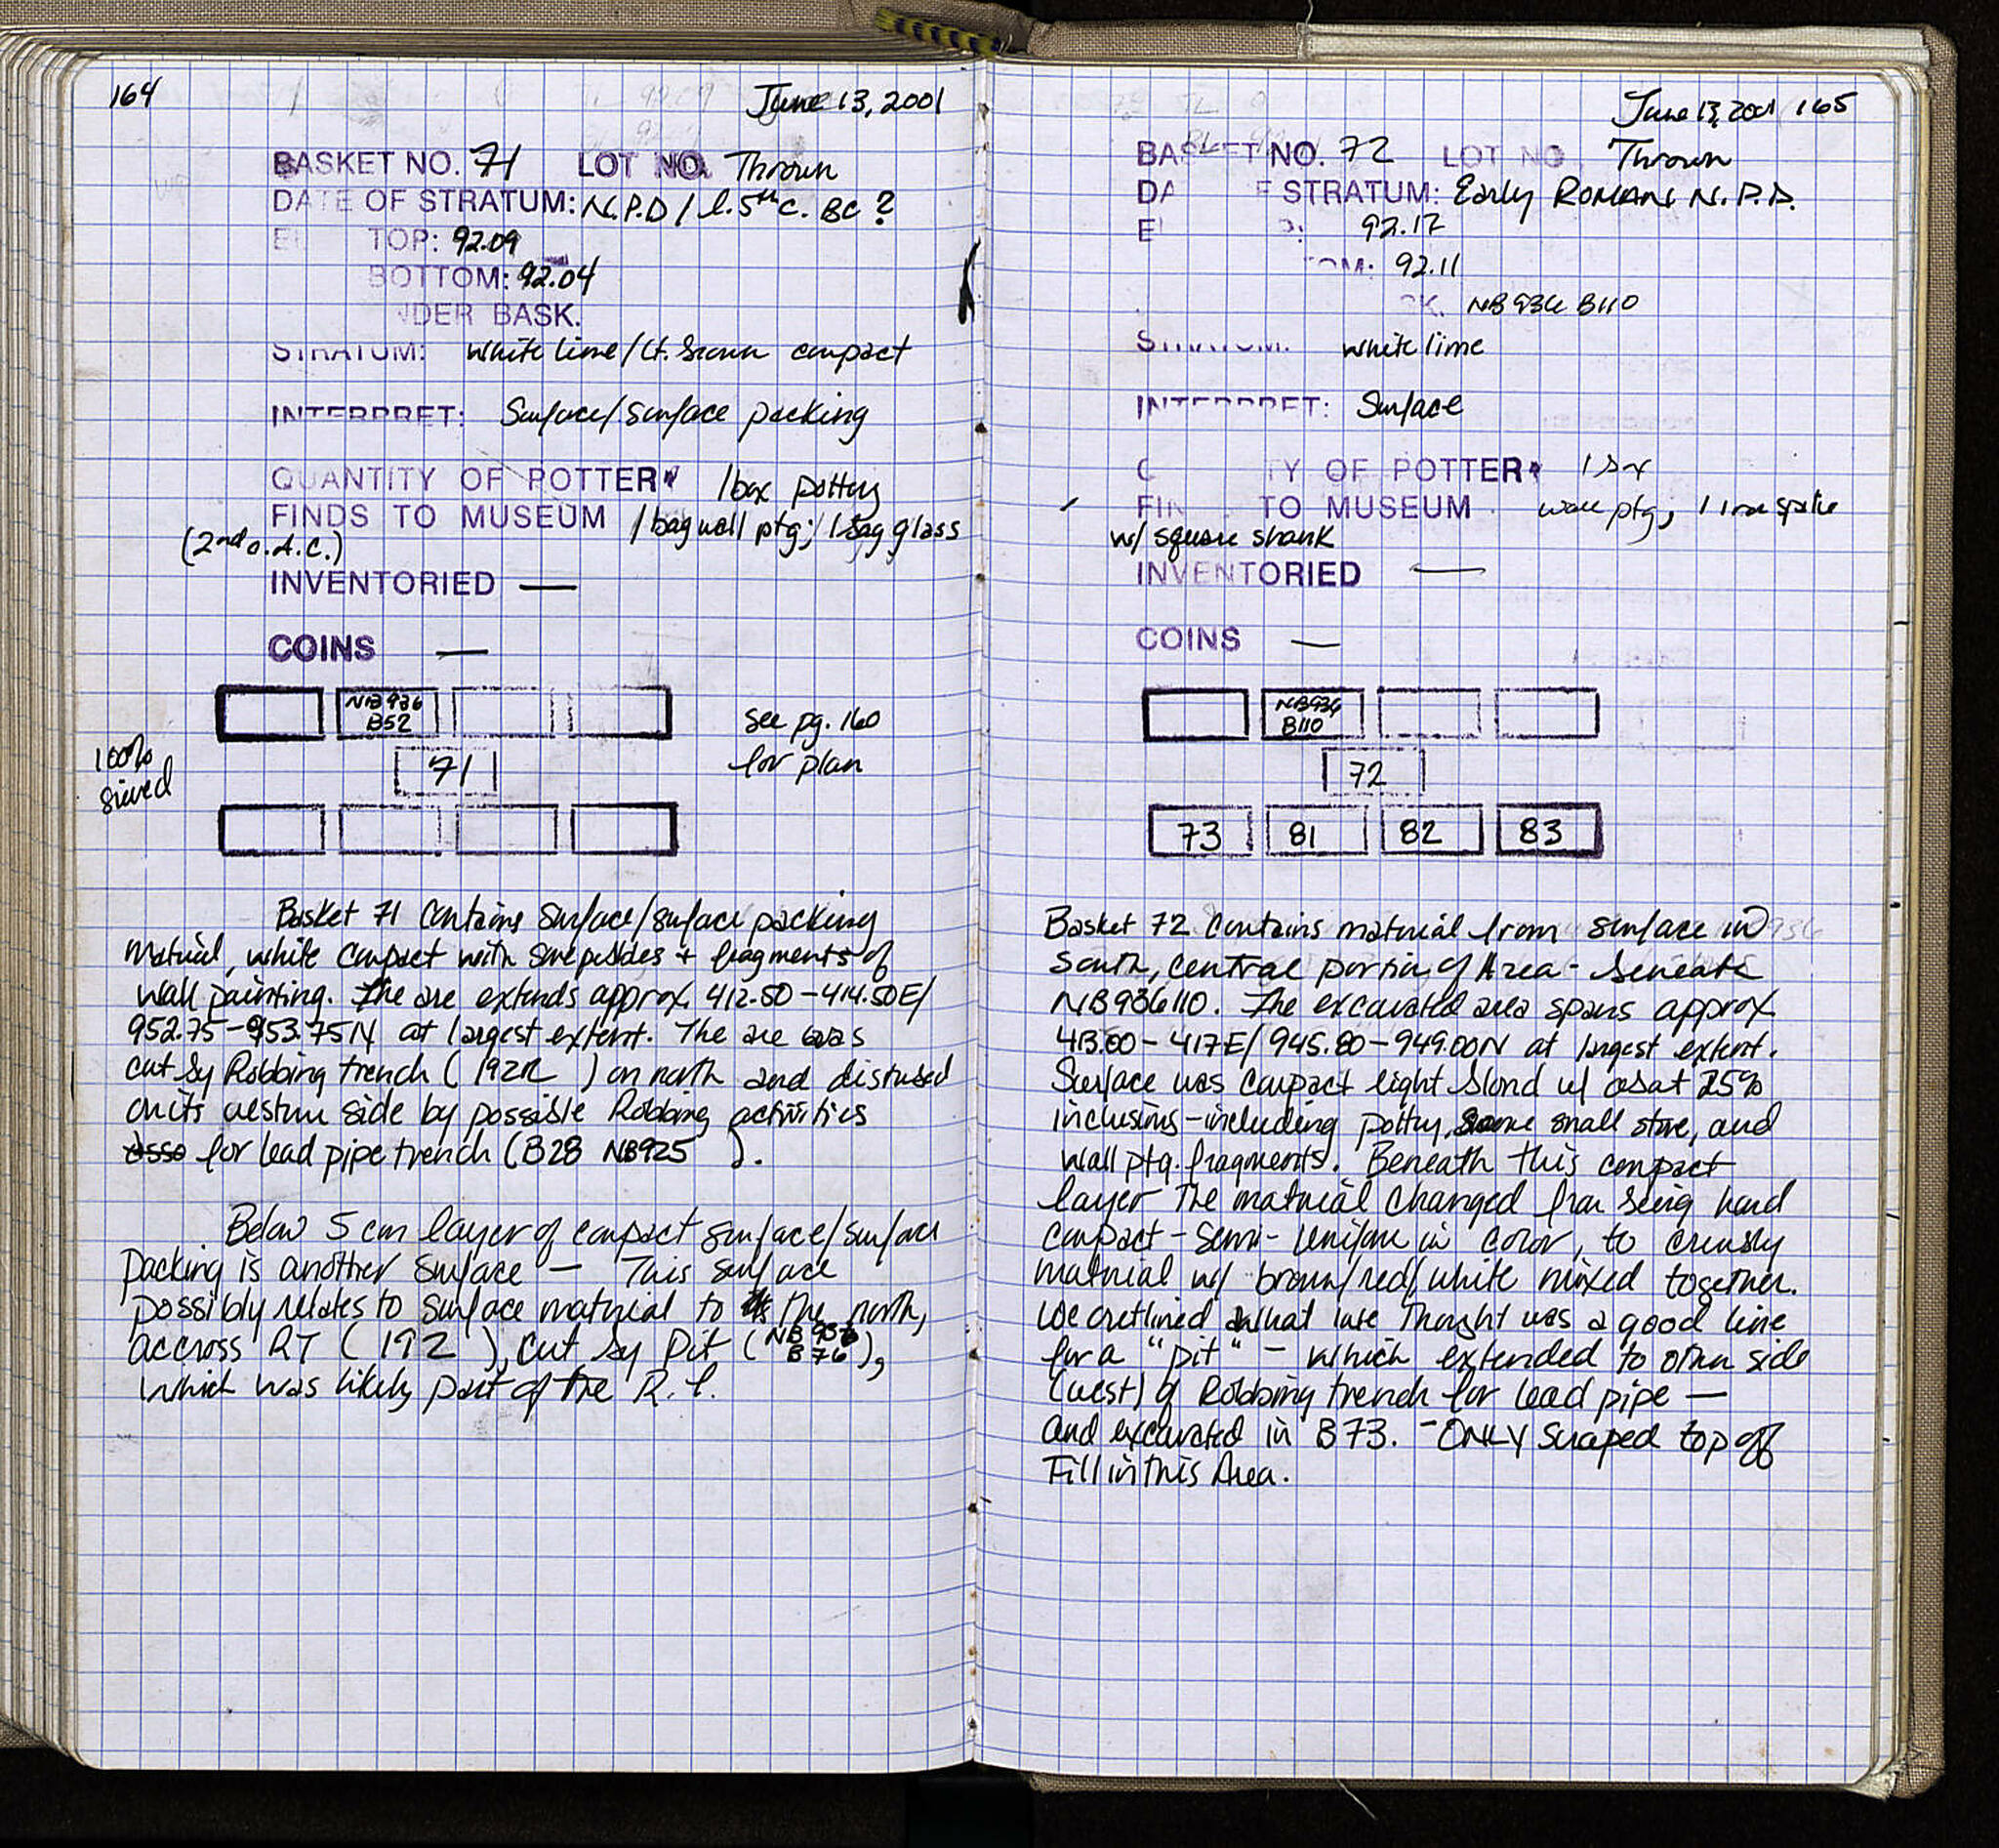 164
June 13, 2001
BASKET NO. 71 LOT NO. Thrown
DATE OF STRATUM: N.P.D / l. 5th c. BC ?
TOP: 92.09
BOTTOM: 92.04
NDER BASK.
STRATUM: white lime/lt. brown compact
INTERPRET: Surface/surface packing
QUANTITY OF POTTERY 1 box pottery
FINDS TO MUSEUM 1 bag wall ptg; 1 bag glass
(2nd A.C.)
INVENTORIED —
COINS —
NB 936
B52
see pg. 160
for plan
100%
sieved
71
Basket 71 contains surface/surface packing
material, white compact with some pebbles + fragments of
wall painting. The are extends approx. 412.50-414.50E/
952.75-953.75N at largest extent. The are was
cut by Robbing trench ( 192R ) on north and distused
on its westrn side by possible Robbing activities
asso for lead pipe trench (B28 NB925 ).
Below 5 cm layer of compact surface/surface
packing is another surface — This surface
possibly relates to surface material to the north,
accross RT ( 192 ), cut by Pit ( NB 936
B 76 ),
which was likely part of the R.t.
June 13, 2001 165
BASKET NO. 72 LOT NO. Thrown
DA F STRATUM: Early ROMAN N.P.D.
E P: 92.17
OM: 92.11
SK. NB 936 B110
S white lime
INTERPRET: Surface
TY OF POTTERY 1 box
FIN TO MUSEUM wall ptg, 1 iron spike
w/ square shank
INVENTORIED —
COINS —
NB936
B110
72
73 81 82 83
Basket 72 contains material from surface in
South, central portion of Area - beneath
NB936110. The excavated area spans approx
413.00-417E/945.80-949.00N at largest extent.
Surface was compact light blond w/ about 25%
inclusions-including pottery, some small stone, and
wall ptg. fragments. Beneath this compact
layer the material changed from being hard
compact-semi-uniform in color, to crumbly
material w/ brown/red/white mixed together.
We outlined what we thought was a good line
for a "pit" - which extended to other side
(west) of Robbing trench for lead pipe —
and excavated in B73. - ONLY scraped top off
Fill in this Area.